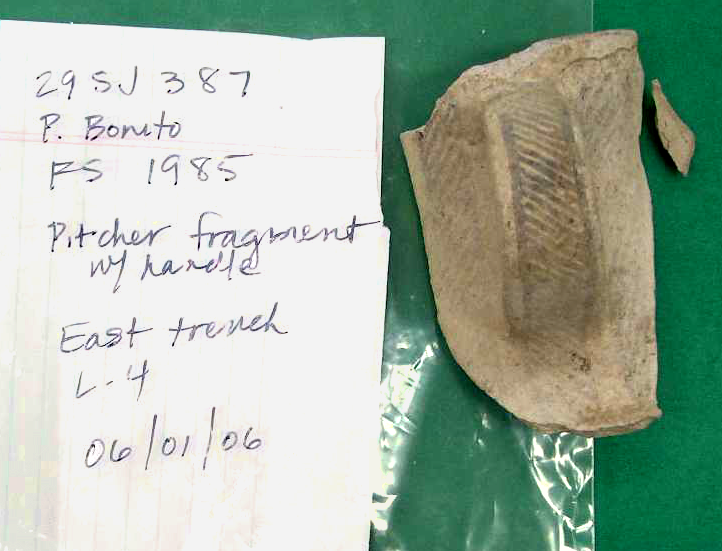 29 SJ 387
P. Bonito
FS 1985
Pitcher fragment
w/ handle
East trench
L-4
06/01/06